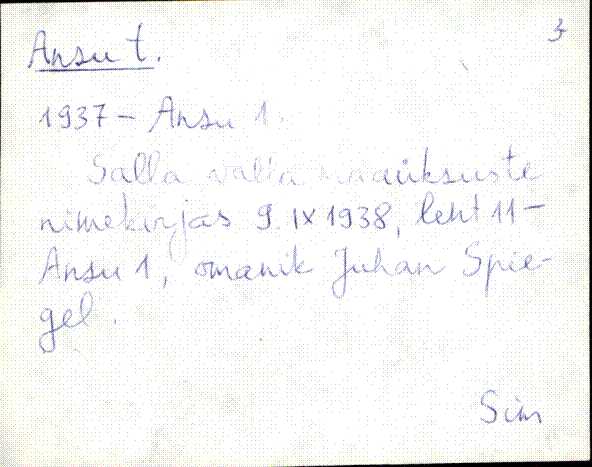 3
Ansu t.
1937 – Ansu 1.
Salla valla maaüksuste
nimekirjas 9. IX 1938, leht 11 –
Ansu 1, omanik Juhan Spie-
gel.
Sim